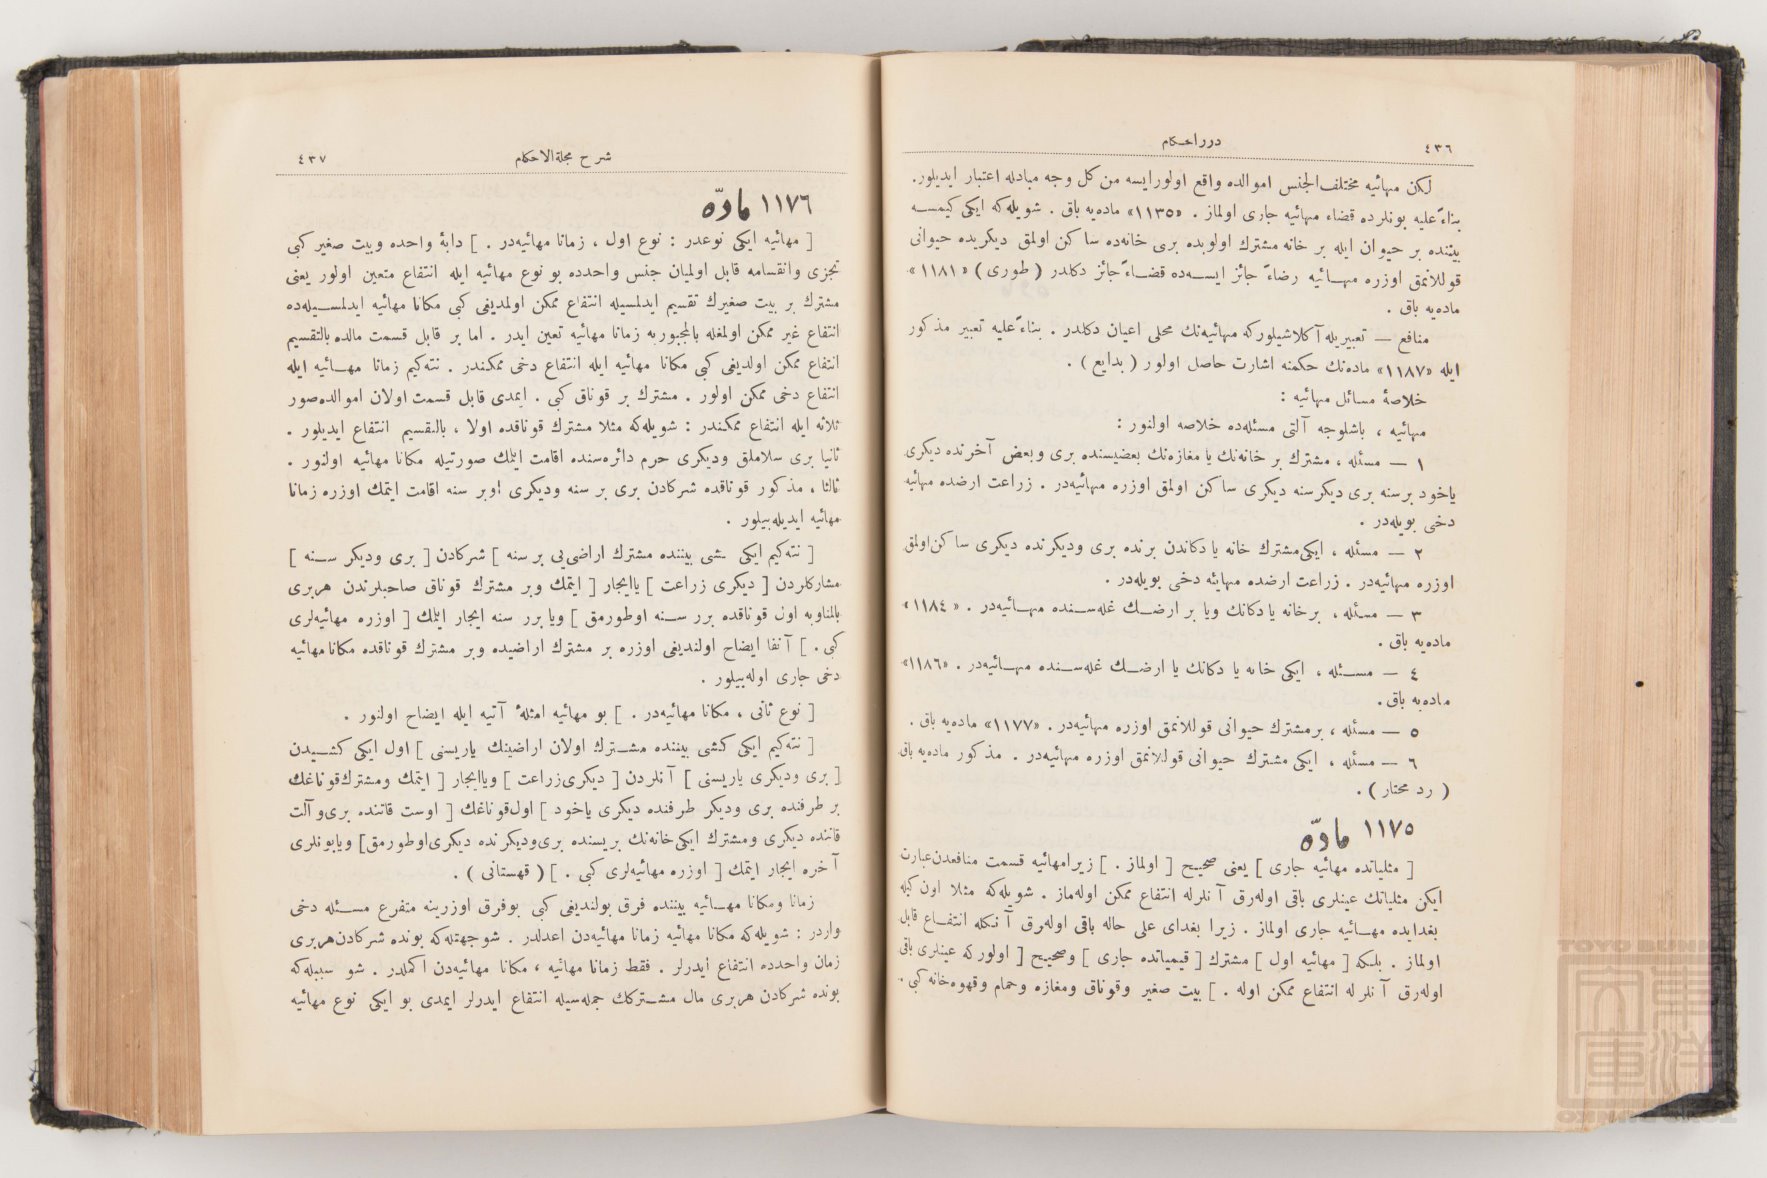 ٤٣٦
درر احكام
لكن مهائيه مختلف‌الجنس اموالده واقع اولورايسه من كل وجه مبادله اعتبار ايديلور.
بناءً عليه بونلرده قضاء مهائيه جارى اولماز . «١١٣٥» ماده‌يه باق . شويله‌كه ايكى كيمسه
بيننده بر حيوان ايله بر خانه مشترك اولوبده برى خانه‌ده ساكن اولمق ديكريده حيوانى
قوللانمق اوزره مهائيه رضاءً جائز ايسه‌ده قضاءً جائز دكلدر ( طورى ) «١١٨١»
ماده‌يه باق .
منافع — تعبيريله آكلاشيلوركه مهائيه‌نك محلى اعيان دكلدر . بناءً عليه تعبير مذكور
ايله «١١٨٧» ماده‌نك حكمنه اشارت حاصل اولور ( بدايع ) .
خلاصهٔ مسائل مهائيه :
مهائيه ، باشلوجه آلتى مسئله‌ده خلاصه اولنور :
١ — مسئله ، مشترك بر خانه‌نك يا مغازه‌نك بعضيسنده برى وبعض آخرنده ديكرى
ياخود برسنه برى ديكرسنه ديكرى ساكن اولمق اوزره مهائيه‌در . زراعت ارضده مهائيه
دخى بويله‌در .
٢ — مسئله ، ايكى مشترك خانه يا دكاندن برنده برى وديكرنده ديكرى ساكن اولمق
اوزره مهائيه‌در . زراعت ارضده مهائيه دخى بويله‌در .
٣ — مسئله ، برخانه يا دكانك ويا بر ارضك غله‌سنده مهائيه‌در . «١١٨٤»
ماده‌يه باق .
٤ — مسئله ، ايكى خانه يا دكانك يا ارضك غله‌سنده مهائيه‌در . «١١٨٦»
ماده‌يه باق .
٥ — مسئله ، برمشترك حيوانى قوللانمق اوزره مهائيه‌در . «١١٧٧» ماده‌يه باق .
٦ — مسئله ، ايكى مشترك حيوانى قوللانمق اوزره مهائيه‌در . مذكور ماده‌يه باق
( رد محتار ) .
١١٧٥ مادّه
[ مثلياتده مهائيه جارى ] يعنى صحيح [ اولماز . ] زيرامهائيه قسمت منافعدن‌عبارت
ايكن مثلياتك عينلرى باقى اوله‌رق آنلرله انتفاع ممكن اوله‌ماز . شويله‌كه مثلا اون كيله
بغدايده مهائيه جارى اولماز . زيرا بغداى على حاله باقى اوله‌رق آنكله انتفاع قابل
اولماز . بلكه [ مهائيه اول ] مشترك [ قيمياتده جارى ] وصحيح [ اولوركه عينلرى باقى
اوله‌رق آنلرله انتفاع ممكن اوله . ] بيت صغير وقوناق ومغازه وحمام وقهوه‌خانه كبى .
شرح مجلةالاحكام
٤٣٧
١١٧٦ مادّه
[ مهائيه ايكى نوعدر : نوع اول ، زمانا مهائيه‌در . ] دابهٔ واحده وبيت صغير كبى
تجزى وانقسامه قابل اولميان جنس واحدده بو نوع مهائيه ايله انتفاع متعين اولور يعنى
مشترك بر بيت صغيرك تقسيم ايدلمسيله انتفاع ممكن اولمديغى كبى مكانا مهائيه ايدلمسيله‌ده
انتفاع غير ممكن اولمغله بالمجبوريه زمانا مهائيه تعين ايدر . اما بر قابل قسمت مالده بالتقسيم
انتفاع ممكن اولديغى كبى مكانا مهائيه ايله انتفاع دخى ممكندر . نته‌كيم زمانا مهائيه ايله
انتفاع دخى ممكن اولور . مشترك بر قوناق كبى . ايمدى قابل قسمت اولان اموالده‌صور
ثلاثه ايله انتفاع ممكندر : شويله‌كه مثلا مشترك قوناقده اولا ، بالتقسيم انتفاع ايديلور .
ثانيا برى سلاملق وديكرى حرم دائره‌سنده اقامت ايتمك صورتيله مكانا مهائيه اولنور .
ثالثا ، مذكور قوناقده شركادن برى بر سنه وديكرى اوبر سنه اقامت ايتمك اوزره زمانا
مهائيه ايديله‌بيلور .
[ نته‌كيم ايكى شى بيننده مشترك اراضى‌يى برسنه ] شركادن [ برى وديكر سنه ]
مشاركلردن [ ديكرى زراعت ] ياايجار [ ايتمك وبر مشترك قوناق صاحبلرندن هربرى
بالمناوبه اول قوناقده برر سنه اوطورمق ] ويا برر سنه ايجار ايتمك [ اوزره مهائيه‌لرى
كبى . ] آنفا ايضاح اولنديغى اوزره بر مشترك اراضيده وبر مشترك قوناقده مكانا مهائيه
دخى جارى اوله‌بيلور .
[ نوع ثانى ، مكانا مهائيه‌در . ] بو مهائيه امثلهٔ آتيه ايله ايضاح اولنور .
[ نته‌كيم ايكى كشى بيننده مشترك اولان اراضينك ياريسنى ] اول ايكى كشيدن
[ برى وديكرى ياريسنى ] آنلردن [ ديكرى زراعت ] ويا ايجار [ ايتمك ومشترك‌قوناغك
بر طرفنده برى وديكر طرفنده ديكرى ياخود ] اول‌قوناغك [ اوست قاتنده برى‌وآلت
قاتنده ديكرى ومشترك ايكى‌خانه‌نك بريسنده برى‌وديكرنده ديكرى‌اوطورمق] ويابونلرى
آخره ايجار ايتمك [ اوزره مهائيه‌لرى كبى . ] ( قهستانى ) .
زمانا ومكانا مهائيه بيننده فرق بولنديغى كبى بوفرق اوزرينه متفرع مسئله دخى
واردر : شويله‌كه مكانا مهائيه زمانا مهائيه‌دن اعدلدر . شوجهتله‌كه بونده شركادن‌هربرى
زمان واحدده انتفاع ايدرلر . فقط زمانا مهائيه ، مكانا مهائيه‌دن اكملدر . شو سببله‌كه
بونده شركادن هربرى مال مشتركك جمله‌سيله انتفاع ايدرلر ايمدى بو ايكى نوع مهائيه
TOYO BUNKO
東洋文庫
TOYO BUNKO